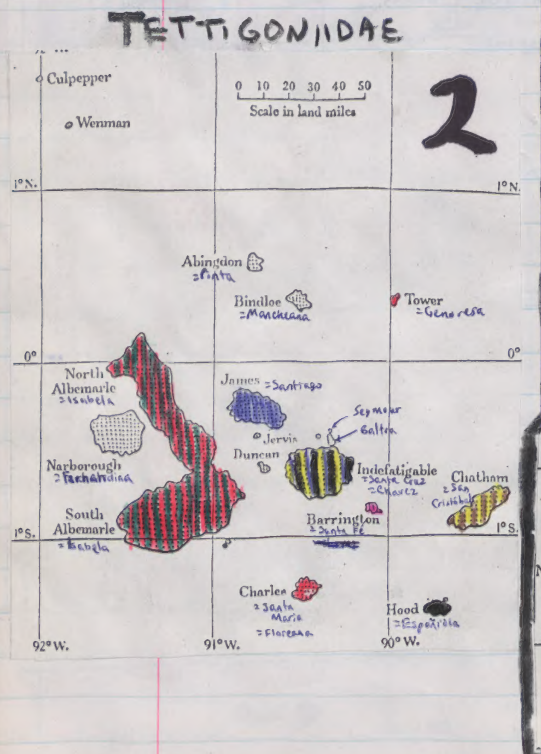 TETTIGONIIDAE
Culpepper
Wenman
0 10 20 30 40 50
Scale in land miles
2
1° N.
1° N.
Abingdon
=Pinta
Bindloe
=Marcheana
Tower
=Genoresa
0°
0°
North
Albemarle
=Isabela
James =Santiago
Seymour
Baltra
Jervis
Duncan
Narborough
=Fernandina
Indefatigable
=Santa Cruz
=Chavez
Chatham
=San
Cristóbal
South
Albemarle
=Isabela
Barrington
=Santa Fé
1° S.
1° S.
Charles
=Santa
Maria
=Floreana
Hood
=Española
92° W.
91° W.
90° W.